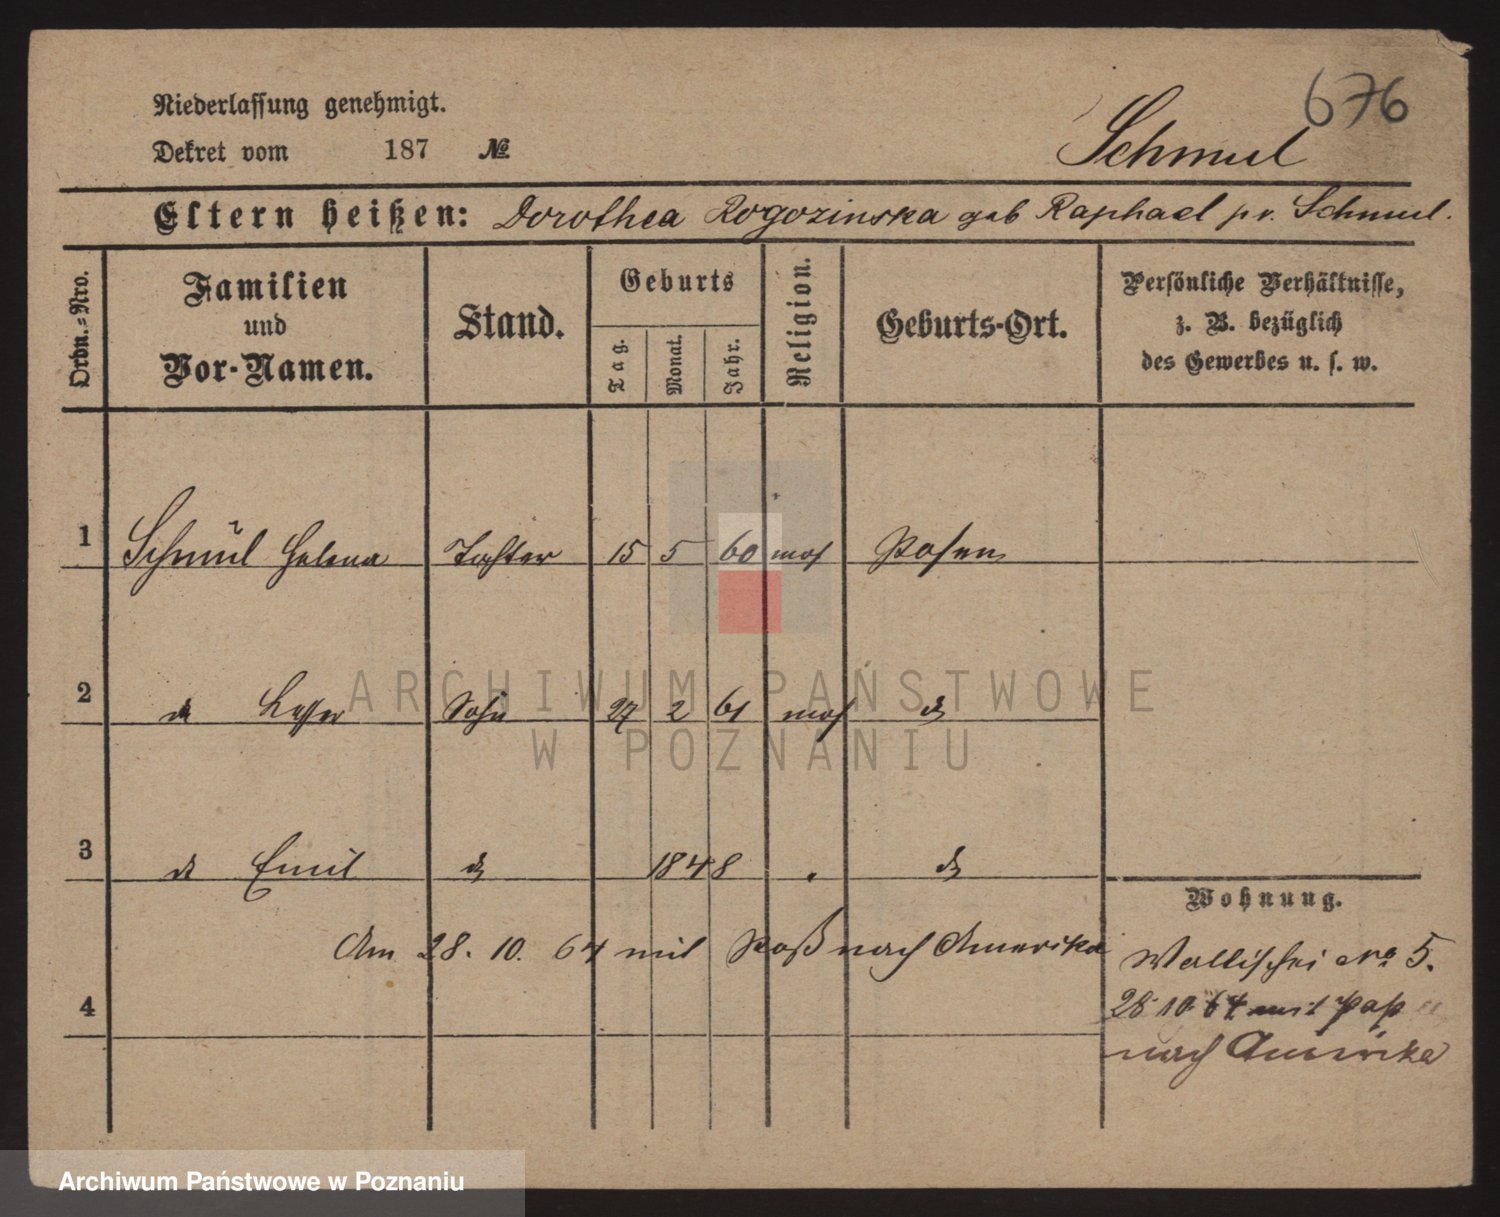 676
Niederlassung genehmigt.
Dekret vom 187 №
Schmul
Eltern heißen: Dorothea Rogozinska geb Raphael pr. Schmul.
Ordn.-Nro.
Familien und Vor-Namen.
Stand.
Geburts
Tag.
Monat.
Jahr.
Religion.
Geburts-Ort.
Persönliche Verhältnisse, z. B. bezüglich des Gewerbes u. s. w.
1 Schmul Helena Tochter 15 5 60 mos Posen
2 do Sohn 27 2 61 mos do
3 do Emil do 1848 " do
Wohnung.
Am 28. 10. 64 mit Paß nach Amerika
Wallischei No 5.
28 10 64 mit Paß
nach Amerika
4
ARCHIWUM PAŃSTWOWE
W POZNANIU
Archiwum Państwowe w Poznaniu